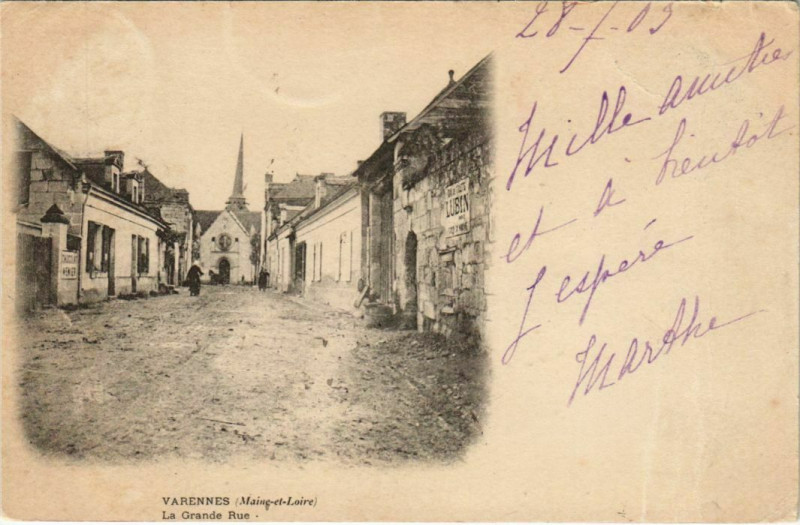 28-7-03
Mille amitiés
et à bientôt
J'espère
Marthe
LUBIN
CHOCOLAT
MENIER
VARENNES (Maine-et-Loire)
La Grande Rue